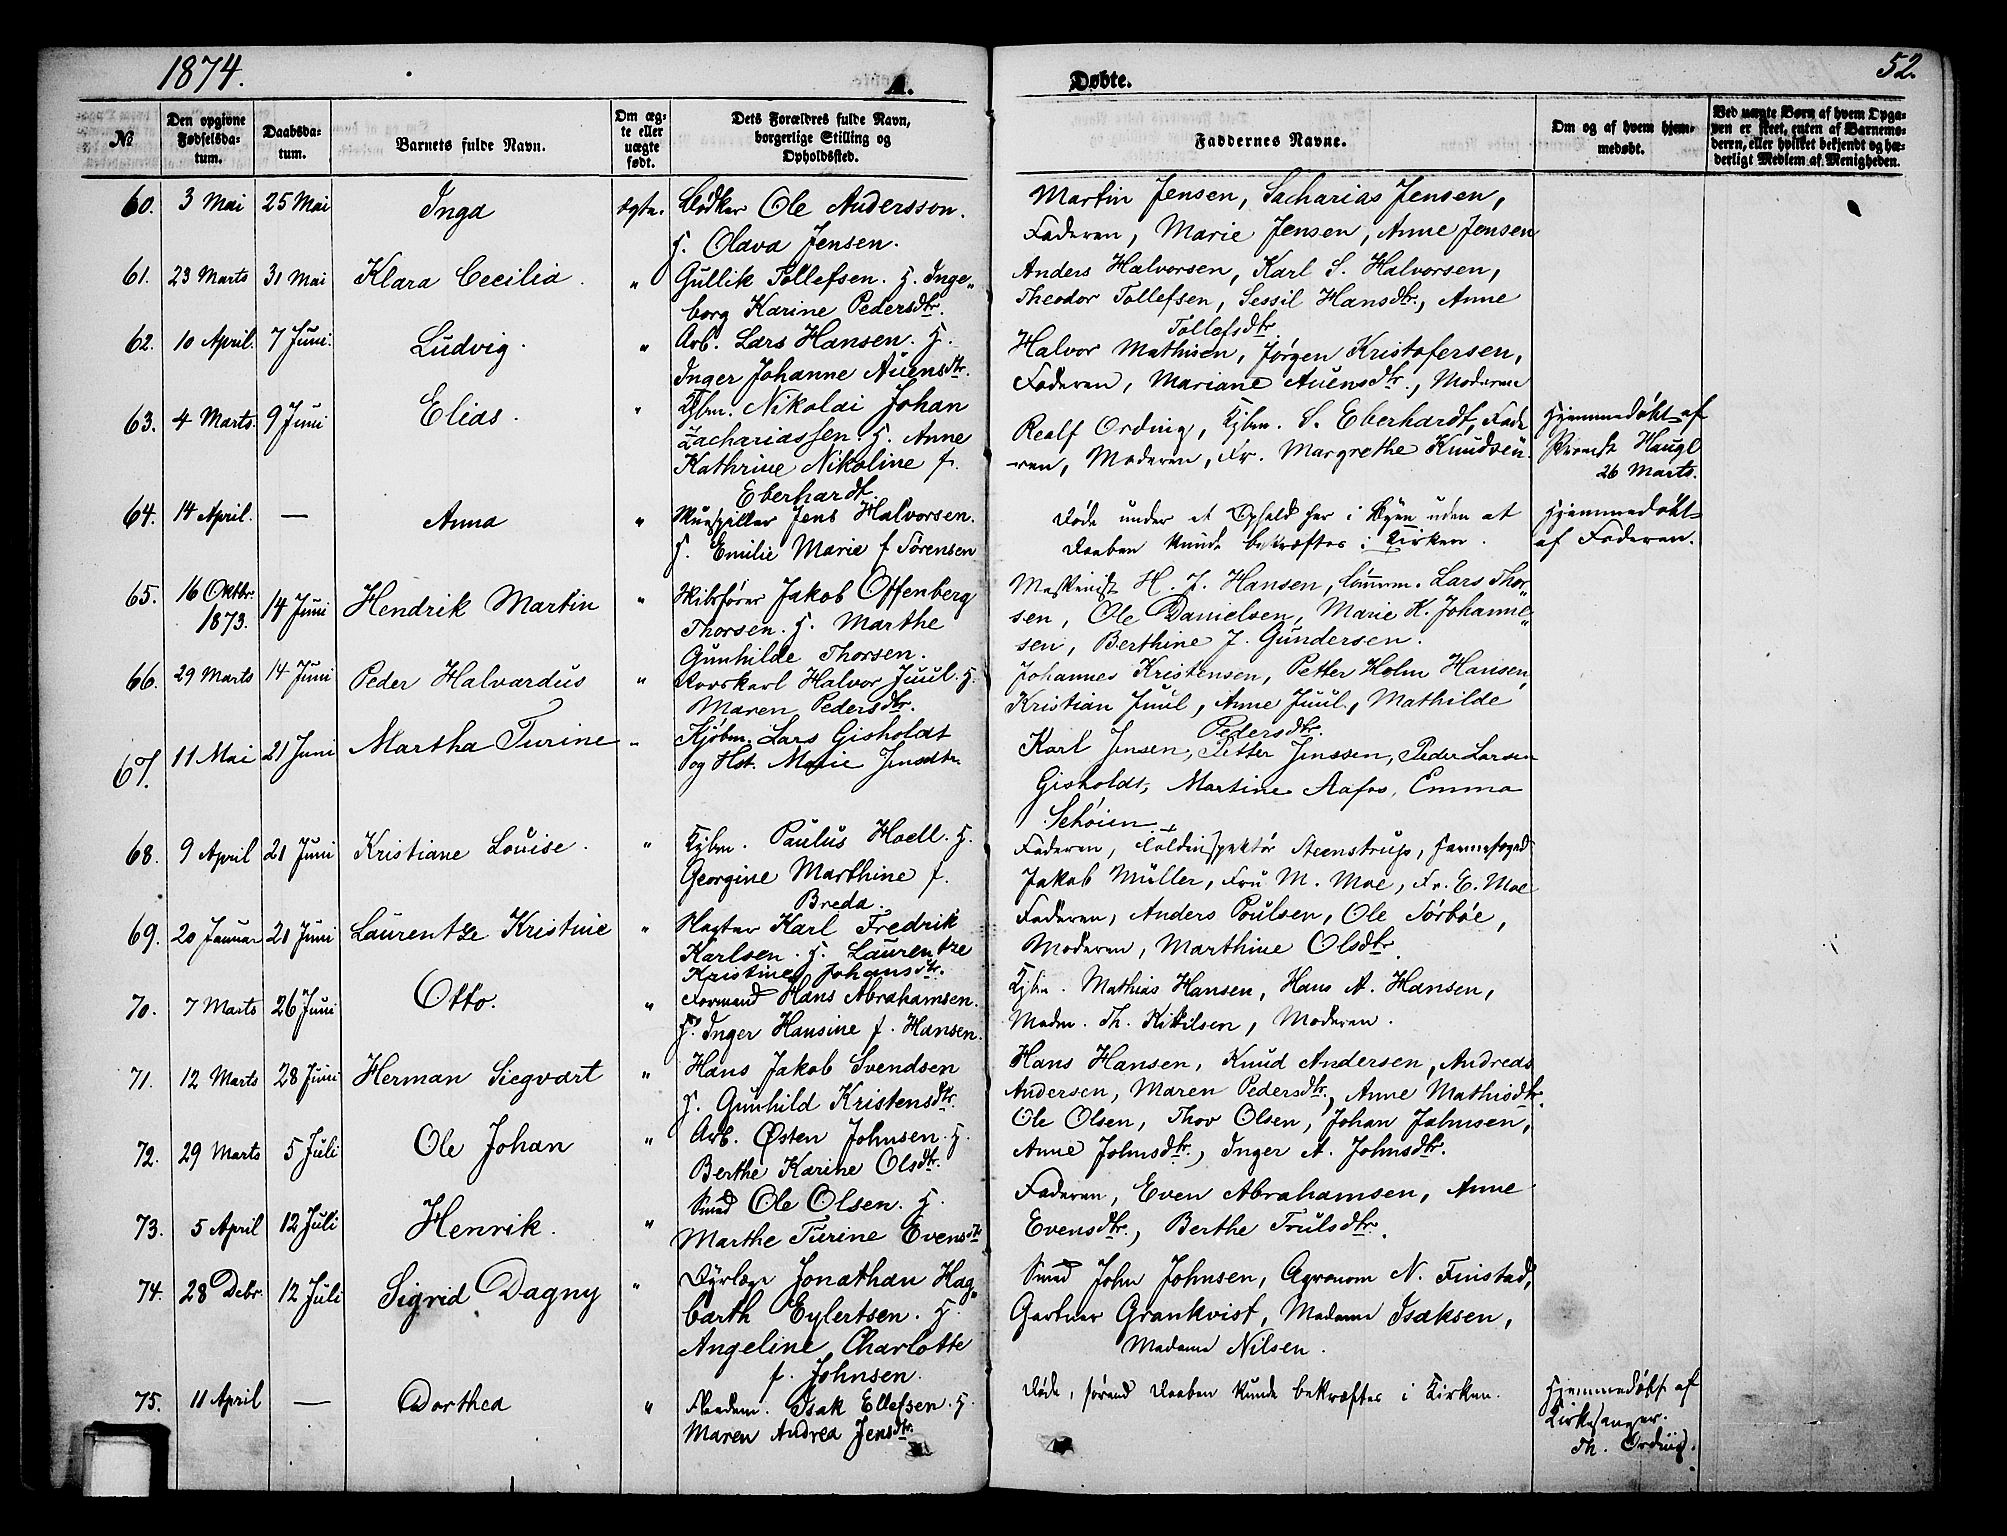 1874.
A.
Døbte.
52.
No
Den opgivne Fødselsda-tum.
Daabsda-tum.
Barnets fulde Navn.
Om æg-te eller uægte født.
Dets Forældres fulde Navn, borgerlige Stilling og Opholdssted.
Faddernes Navne.
Om og af hvem hjem-medøbt.
Ved uægte Børn af hvem Opga-ven er skeet, enten af Barnemo-deren, eller hvilket bekjendt og hæ-derligt Medlem af Menigheden.
60. 3 Mai 25 Mai Inga ægte. Bødker Ole Andersson.
H. Olava Jensen.
Martin Jensen, Sacharias Jensen,
Faderen, Marie Jensen, Anne Jensen
61. 23 Marts 31 Mai Klara Cecilia. " Gullik Tollefsen. H. Inge„
borg Karine Pedersdtr.
Anders Halvorsen, Karl S. Halvorsen,
Theodor Tollefsen, Sessil Hansdtr., Anne
Tollefsdtr.
62. 10 April. 7 Juni. Ludvig. " Arb. Lars Hansen. H.
Inger Johanne Auensdtr.
Halvor Mathisen, Jørgen Kristofersen,
Faderen, Mariane Auensdtr., Moderen
63. 4 Marts. 9 Juni Elias. " Kjbm. Nikolai Johan
Zachariassen. H. Anne
Kathrine Nikoline f.
Eberhardt.
Realf Ording, Kjbm. S. Eberhardt, Fade
-ren, Moderen, Fr. Margrethe Knudsen.
Hjemmedøbt af
Haugl
26 Marts.
64. 14 April. — Anna " Skuespiller Jens Halvorsen.
H. Emilie Marie f. Sørensen
Døde under et Ophold her i Byen uden at
Daaben kunde bekræftes i Kirken.
Hjemmedøbt
af Faderen.
65. 16 Oktbr. 1873. 14 Juni Hendrik Martin " Skibsfører Jakob Offenberg
Thorsen. H. Marthe
Gunhilde Thorsen.
Maskinist H. J. Hansen, Tømmerm. Lars Thor„
sen, Ole Danielsen, Marie K. Johanne„
sen, Berthine J. Gundersen.
66. 29 Marts 14 Juni Peder Halvardus " Halvor Juul. H.
Maren Pedersdtr.
Johannes Kristensen, Petter Holm Hansen,
Kristian Juul, Anne Juul, Mathilde
Pedersdtr.
67. 11 Mai 21 Juni Martha Turine " Kjøbm. Lars Gisholdt
og Hst. Marie Jensdtr.
Karl Jensen, Petter Jenssen, Peder Larsen
Gisholdt, Martine Aafos, Emma
Schøien.
68. 9 April 21 Juni Kristiane Louise. " Kjbm. Paulus Hoell. H.
Georgine Marthine f.
Breda.
Faderen, Toldinspektør Steenstrup, Havnefoged
Jakob Müller, Fru M. Moe, Fr. E. Moe
69. 20 Januar 21 Juni Laurentze Kristine " Slagter Karl Fredrik
Karlsen. H. Laurentze
Kristine Johansdtr.
Faderen, Anders Poulsen, Ole Tørbøe,
Moderen, Marthine Olsdtr.
70. 7 Marts 26 Juni Otto. " Formand Hans Abrahamsen.
H. Inger Hansine f. Hansen.
Kjbm. Mathias Hansen, Hans A. Hansen,
Madm. Th. Kittilsen, Moderen.
71. 12 Marts 28 Juni Herman Siegvart " Hans Jakob Svendsen
H. Gunhild Kristensdtr.
Hans Hansen, Knud Andersen, Andreas
Andersen, Maren Pedersdtr., Anne Mathisdtr.
72. 29 Marts 5 Juli Ole Johan " Arb. Østen Johnsen. H.
Berthe Karine Olsdtr.
Ole Olsen, Thov Olsen, Johan Johnsen,
Anne Johnsdtr., Inger A. Johnsdtr.
73. 5 April 12 Juli Henrik. " Smed Ole Olsen. H.
Marthe Turine Evensdtr
Faderen, Even Abrahamsen, Anne
Evensdtr., Berthe Trulsdtr.
74. 28 Debr. 12 Juli Sigrid Dagny " Dyrlæge Jonathan Hag„
barth Eylertsen. H.
Angeline Charlotte
f. Johnsen.
Smed John Johnsen, Agronom N. Finstad,
Gartner Grankvist, Madame Isaksen,
Madame Nilsen.
75. 11 April — Dorthea " Isak Ellefsen. H.
Maren Andrea Jensdtr.
Døde, førend Daaben kunde bekræftes i Kirken.
Hjemmedøbt af
Kirkesanger.
Th. Ording.